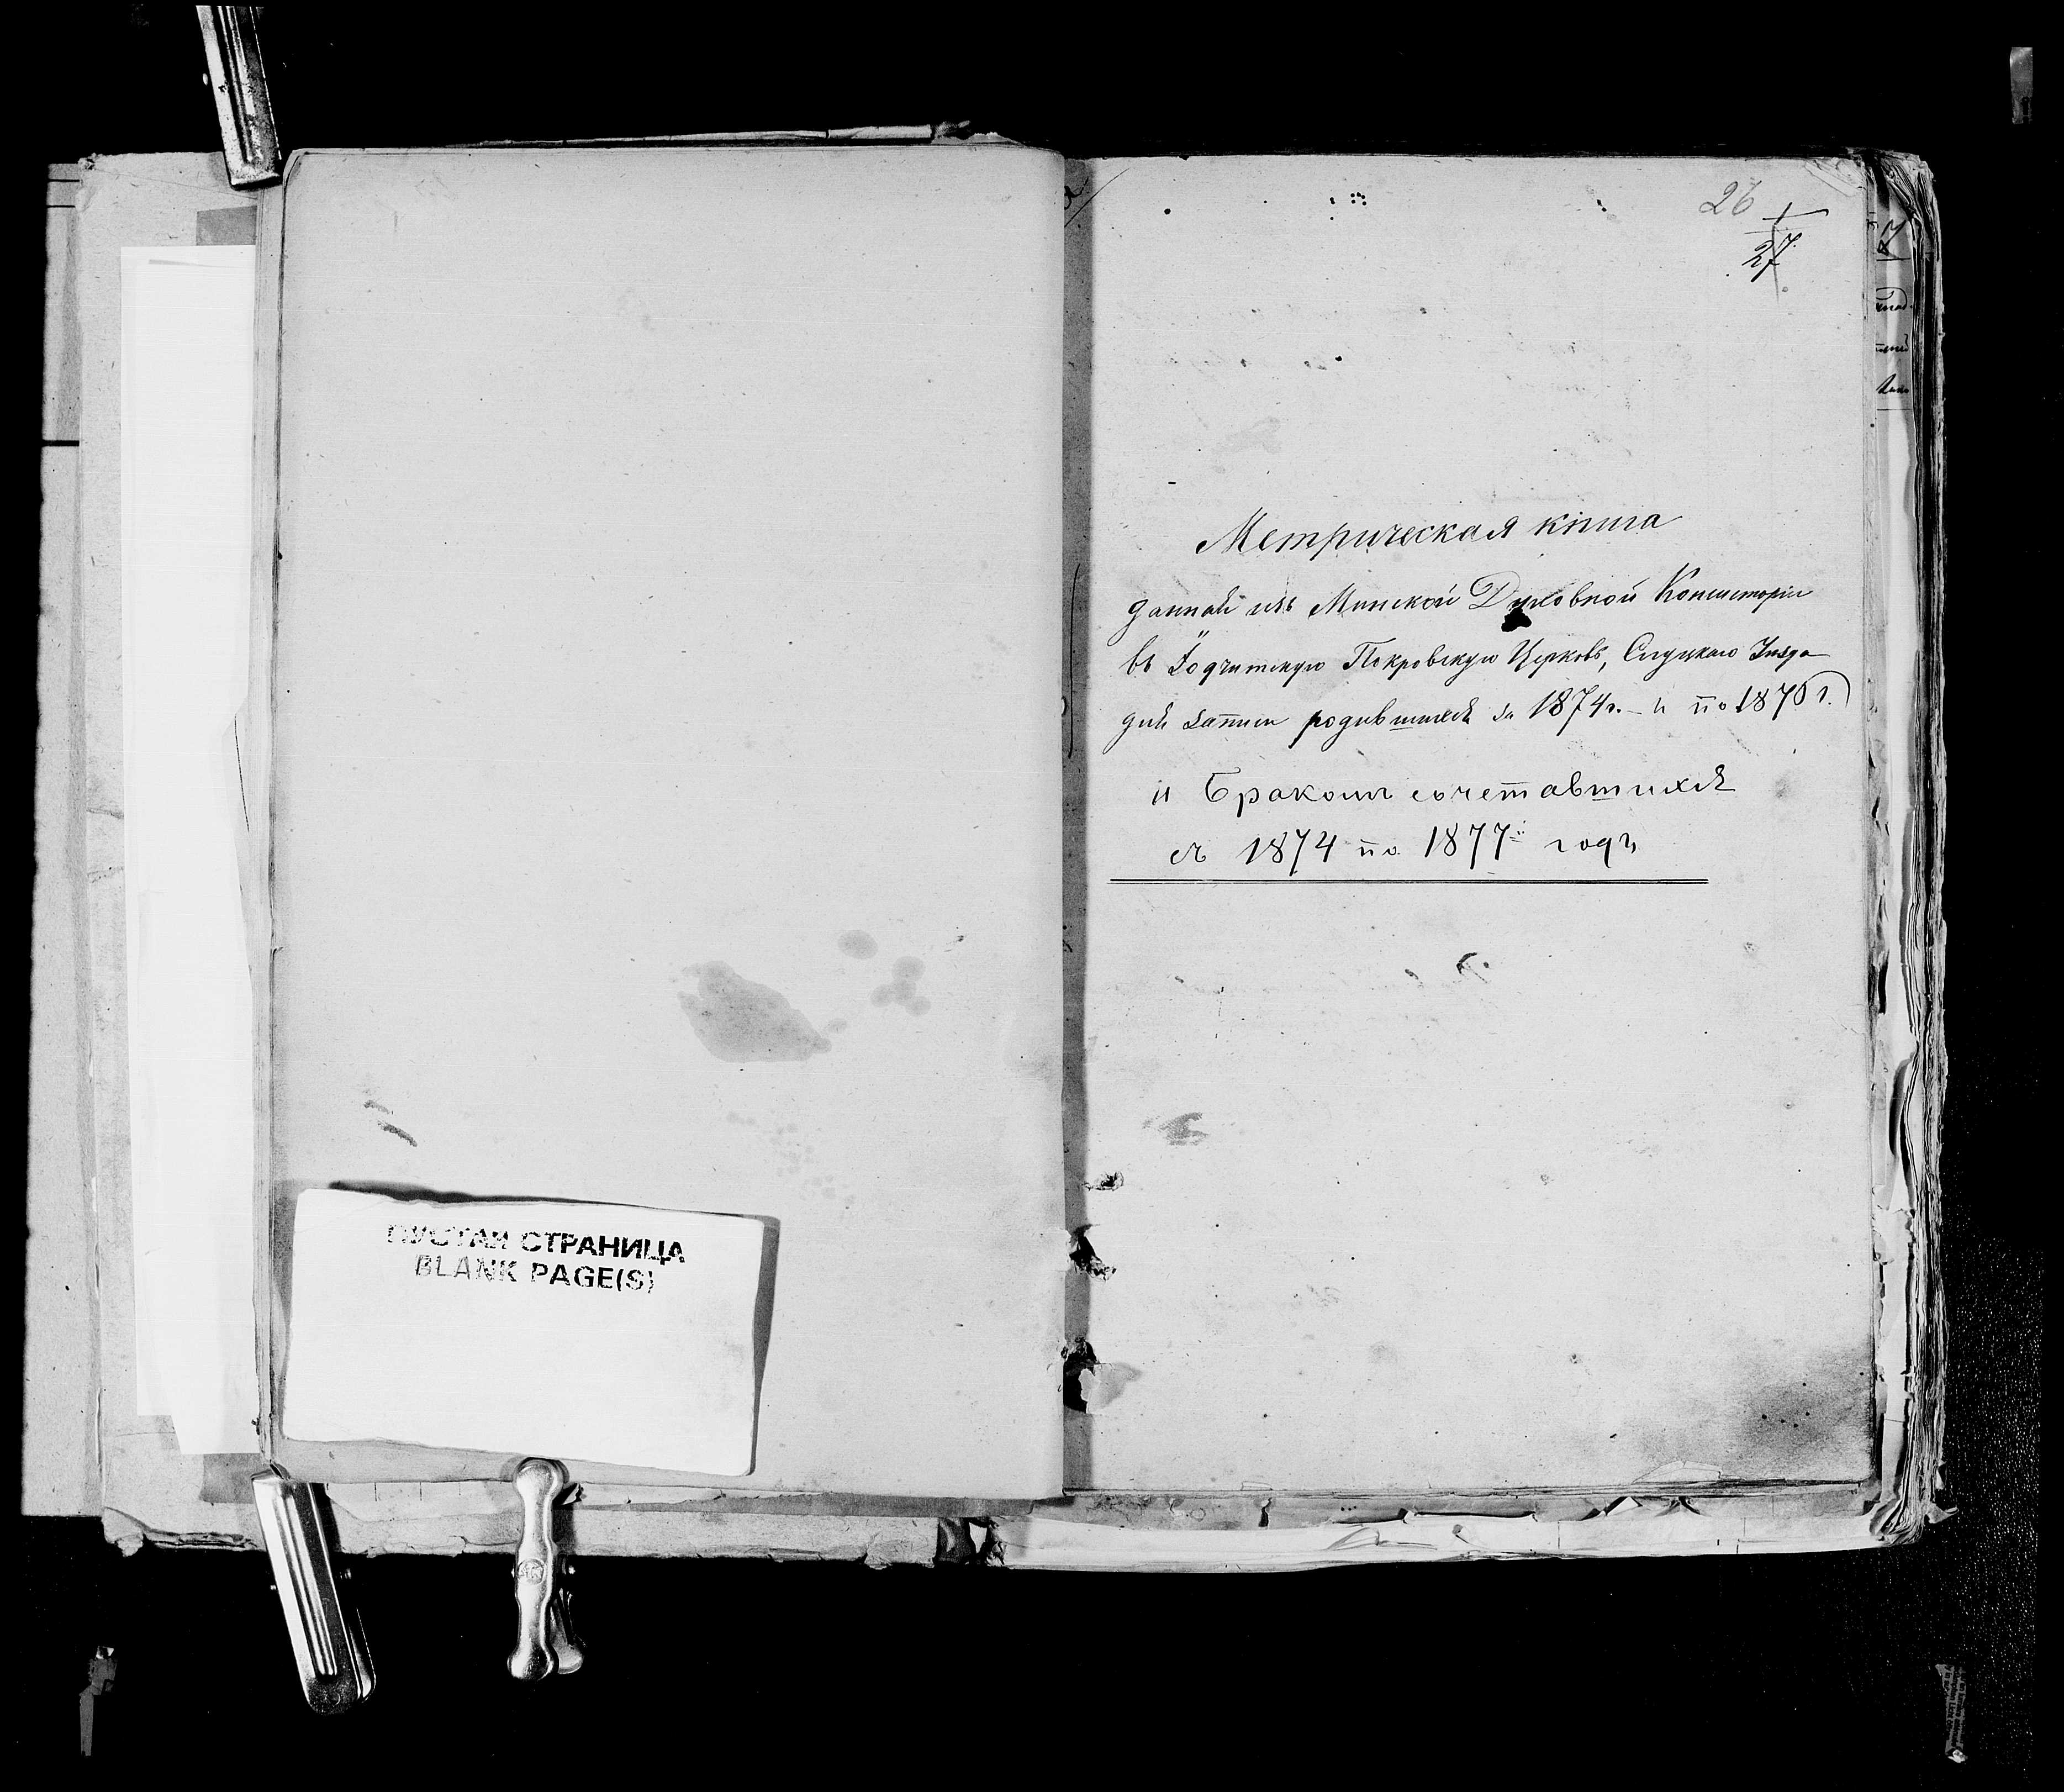 26
27
Метрическая книга
данная изъ Минской Духовной Консисторіи
въ Покровскую Церковь, Слуцкаго Уѣзда
для записи родившихся за 1874г. и по 1876 г.
и Бракомъ сочетавшихся
съ 1874 по 1877й годъ
ЧИСТАЯ СТРАНИЦА
BLANK PAGE(S)